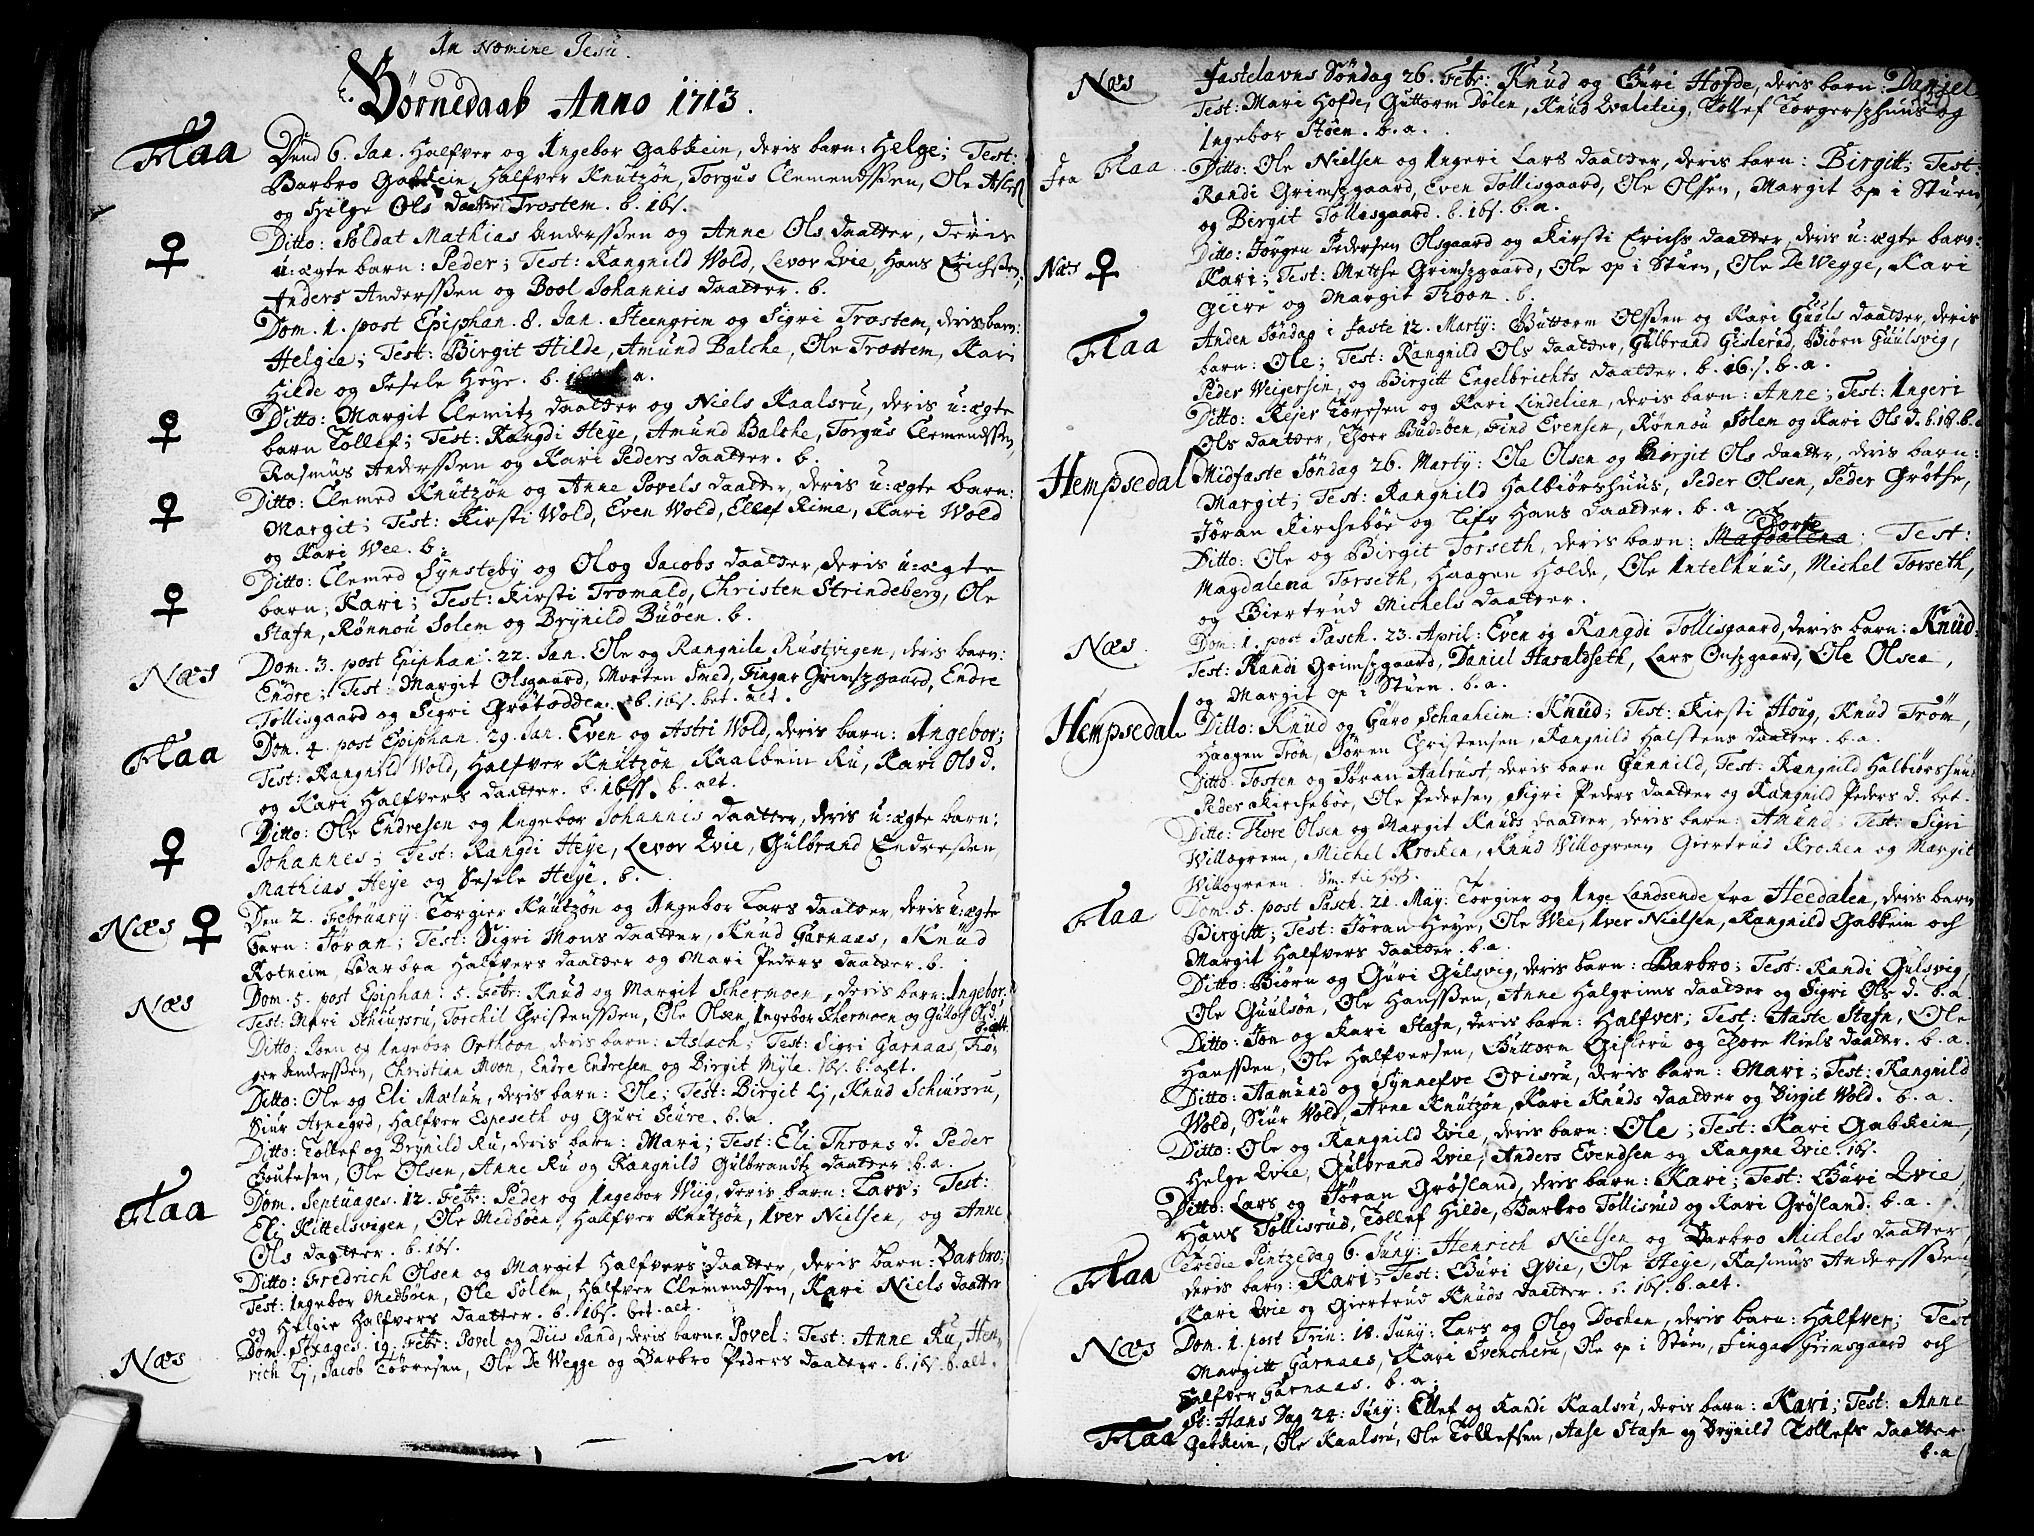 In Nomine Jesu.
Børnedaab Anno 1713.
Flaa
Dend 6. Jan. Halfver og Ingebor Gabkein, deris barn: Helge; Test:
Barbro Gabkein, Halfver Knutzøn, Torgus Clemendssen, Ole Aslef
og Helge Ols daatter Trostem. b. 16s.
♀
Ditto: Soldat Mathias Anderssen og Anne Ols daatter, deris
u:ægte barn: Peder; Test: Rangnild Wold, Levor Qvie, Hans Erichsen,
Anders Anderssen og Bool Johannis daatter. b.
Dom. 1. post Epiphan. 8. Jan. Steengrim og Sigri Trostem, deris barn:
Helgie; Test: Birgit Hilde, Amund Balche, Ole Trostem, Kari
Hilde og Sesele Heye. b. a.
♀
Ditto: Margit Clemitz daatter og Niels Kaalsru, deris u:ægte
barn Tollef; Test: Rangdi Heye, Amund Balche, Torgus Clemendssen,
Rasmus Anderssen og Kari Peders daatter. b.
♀
Ditto: Clemed Knutzøn og Anne Povels daatter, deris u:ægte barn:
Margit; Test: Kirsti Wold, Even Wold, Ellef Rime, Kari Wold
og Kari Wee. b.
♀
Ditto: Clemed Synsteby og Olog Jacobs daatter, deris u:ægte
barn; Kari; Test: Kirsti Tromald, Christen Strindeberg, Ole
Stafn, Rønnou Solem og Brynild Buøen. b.
Næs
Dom. 3. post Epiphan: 22. Jan. Ole og Rangnile Rustvigen, deris barn:
Endre; Test: Margit Olsgaard, Morten Smed, Fingar Grimszgaard, Endre
Tollisgaard og Sigri Grøtodden. b. 16s. bet. alt.
Flaa
Dom. 4. post Epiphan. 29. Jan. Even og Astri Wold, deris barn: Ingebor;
Test: Rangnild Wold, Halfver Knutzøn Kaalbein Ru, Kari Ols d.
og Kari Halfvers daatter. b. 16s. b. alt.
♀
Ditto: Ole Endresen og Ingebor Johannis daatter, deris u:ægte barn:
Johannes; Test: Rangdi Heye, Levor Qvie, Gulbrand Endresen,
Mathias Heye og Sesele Heye. b.
Næs ♀
Den 2. February: Torgier Knutzøn og Ingebor Lars daatter, deris u:ægte
barn: Jøran; Test: Sigri Mons daatter, Knud Garnaas, Knud
Rotneim, Barbra Halfvers daatter og Mari Peders daatter. b.
Næs
Dom. 5. post Epiphan: 5. Febr: Knud og Margit Schermoen, deris barn: Ingebor.
Test: Mari Schiursru, Torchil Christenssen, Ole Olsen, Ingebor Schermoen og Gunor Ols d.
b. alt.
Ditto: Joen og Ingebor Ortheon, deris barn: Aslach; Test: Sigri Garnaas, Tør-
ger Anderssen, Christian Moon, Endre Endresen og Birgit Myle. 16s. b. alt.
Ditto: Ole og Eli Mælum, deris barn: Ole; Test: Birgit Lj, Knud Schiursru,
Siur Arnegrd, Halfver Espeseth og Guri Seure. b. a.
Ditto: Tollef og Brynild Ru, deris barn: Mari; Test: Eli Throns d. Peder
Goutesen, Ole Olsen, Anne Ru og Rangnild Gulbrandtz daatter. b. a.
Flaa
Dom. Septuages. 12. Febr: Peder og Ingebor Wiig, deris barn: Lars; Test:
Eli Kittelsvigen, Ole Medbøen, Halfver Knutzøn, Iver Nielsen, og Anne
Ols daatter. b. 16s.
Ditto: Fredrich Olsen og Margit Halfvers daatter, deris barn: Barbro;
Test: Ingebor Medbøen, Ole Solem, Halfver Clemendssen, Kari Niels daatter
og Helgie Halfvers daatter. b. 16s. bet. alt.
Næs
Dom. Sexages. 19. Febr: Povel og Diis Sand, deris barn: Povel; Test: Anne Ru, Hen-
rich Lj, Jacob Tøresen, Ole De Wegge og Barbro Peders daatter. b. 16s. b. alt.
Næs
Fastelavns Søndag 26. Febr: Knud og Guri Hofde, deris barn: Daniel
Test: Mari Hofde, Guttorm Dølen, Knud Qvaleteig, Tollef Torgerszhuus og
Ingebor Støen. b. a.
fra Flaa
Ditto: Ole Nielsen og Ingeri Lars daatter, deris barn: Birgitt; Test:
Randi Grimszgaard, Even Tollisgaard, Ole Olsen, Margit op i Stuen
og Birgit Tollisgaard. b. 16s. b. a.
Næs ♀
Ditto: Jørgen Pedersen Olsgaard og Kirsti Erichs daatter, deris u:ægte barn:
Kari; Test: Metthe Grimszgaard, Ole op i Stuen, Ole De Wegge, Kari
Giire og Margit Thoon. b.
Flaa
Anden Søndag i Faste 12. Marty: Guttorm Olssen og Kari Guuls daatter, deris
barn: Ole; Test: Rangnild Ols daatter, Gulbrand Gislerud, Biørn Guulsvig,
Peder Weigersin, og Birgitt Engelbrichts daatter. b. 16.s. b. a.
Ditto: Rejer Toresen og Kari Lindelien, deris barn: Anne; Test: Ingeri
Ols daatter, Thoer Bud-øen, Find Evensen, Rønnou Solem og Kari Ols d. b. 16s. b. a
Hempsedal
Midfaste Søndag 26. Marty: Ole Olsen og Birgit Ols daatter, deris barn:
Margit; Test: Rangnild Halbiørshuus, Peder Olsen, Peder Grøthe,
Jøran Kirchebøe og Lifv Hans daatter. b. a.
Thorte
Ditto: Ole og Birgit Torseth, deris barn: Magdalena: Test:
Magdalena Torseth, Haagen Holde, Ole Intelhuus, Michel Torseth,
og Giertrud Michels daatter.
Næs
Dom. 1. post Pasch. 23. April: Even og Rangdi Tollisgaard, deris barn: Knud:
Test: Randi Grimszgaard, Daniel Haraldseth, Lars Onszgaard, Ole Olsen,
og Margit op i Stuen. b. a.
Hempsedal
Ditto: Knud og Guro Schaaheim: Knud; Test: Kirsti Houg, Knud Trøm,
Haagen Trøm, Søren Christensen, Rangnild Halstens daatter. b. a.
Ditto: Tosten og Jøran Aalrust, deris barn Gunnild, Test: Rangnild Halbiørshuus
Peder Kirchebøe, Ole Pedersen, Sigri Peders daatter og Rangnild Peders d. bet.
Ditto: Thore Olsen og Margit Knuds daatter, deris barn: Amund; Test: Sigri
Willogreen, Michel Krocken, Knud Willogreen Giertrud Kroken og Margit
Willogreen.
Flaa
Dom. 5. post Pasch. 21. May: Torgier og Inge Landsende fra Heedalen, deris barn
Birgitt; Test: Jøran Heye, Ole Wee, Iver Nielsen, Rangnild Gabkein och
Margit Halfvers daatter. b. a.
Ditto: Biørn og Guri Gulsvig, deris barn: Barbro; Test: Randi Gulsvig,
Ole Guulsøn, Ole Hanssen, Anne Halgrims daatter og Sigri Ols d. b. a.
Ditto: Jon og Kari Stafn, deris barn: Halfver; Test: Aaste Stafn, Ole
Hanssen, Ole Halfversen, Guttorm Gisleru og Thore Niels daatter. b. a.
Ditto: Aamund og Synnefve Ovisru, deris barn: Mari; Test: Rangnild
Wold, Siur Wold, Arne Knutzøn, Kari Knuds daatter og Birgit Wold. b. a.
Ditto: Ole og Rangnild Qvie, deris barn: Ole; Test: Kari Gabkein,
Helge Qvie, Gulbrand Qvie, Anders Evendsen og Rangne Qvie. 16s.
Ditto: Lars og Jøran Grøsland, deris barn: Kari; Test: Guri Qvie,
Hans Tollisrud, Tollef Hilde, Barbro Tollisrud og Kari Grøsland. b. a.
Flaa
Tredie Pintzedag 6. Juny: Henrich Nielsen og Barbro Michels daatter,
deris barn: Kari; Test: Guri Qvie, Ole Heye, Rasmus Anderssen,
Kari Qvie og Giertrud Knuds daatter. b. 16s. b. alt.
Næs
Dom. 1. post Trin: 18. Juny: Lars og Olog Dochen, deris barn: Halfver; Test
Margitt Garnaas, Kari Svencheru, Ole op i Stuen, Fingar Grimsgaard och
Halfver Garnaas. b. a.
Flaa
St: Hans Dag 24: Juny: Ellef og Randi Kaalsru, deris barn: Kari; Test: Anne
Gabkein, Ole Kaalsru, Ole Tollefsen, Aase Stafn og Brynild Tollefs daatter
b. a